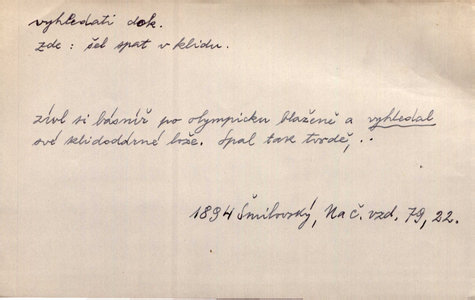 vyhledati dok.
zde: šel spat v klidu.
zívl si básníř po olympicku blaženě a vyhledal
své klidodárné lože. Spal tak tvrdě, ..
1894 Šmilovský, Na č. vzd. 79, 22.